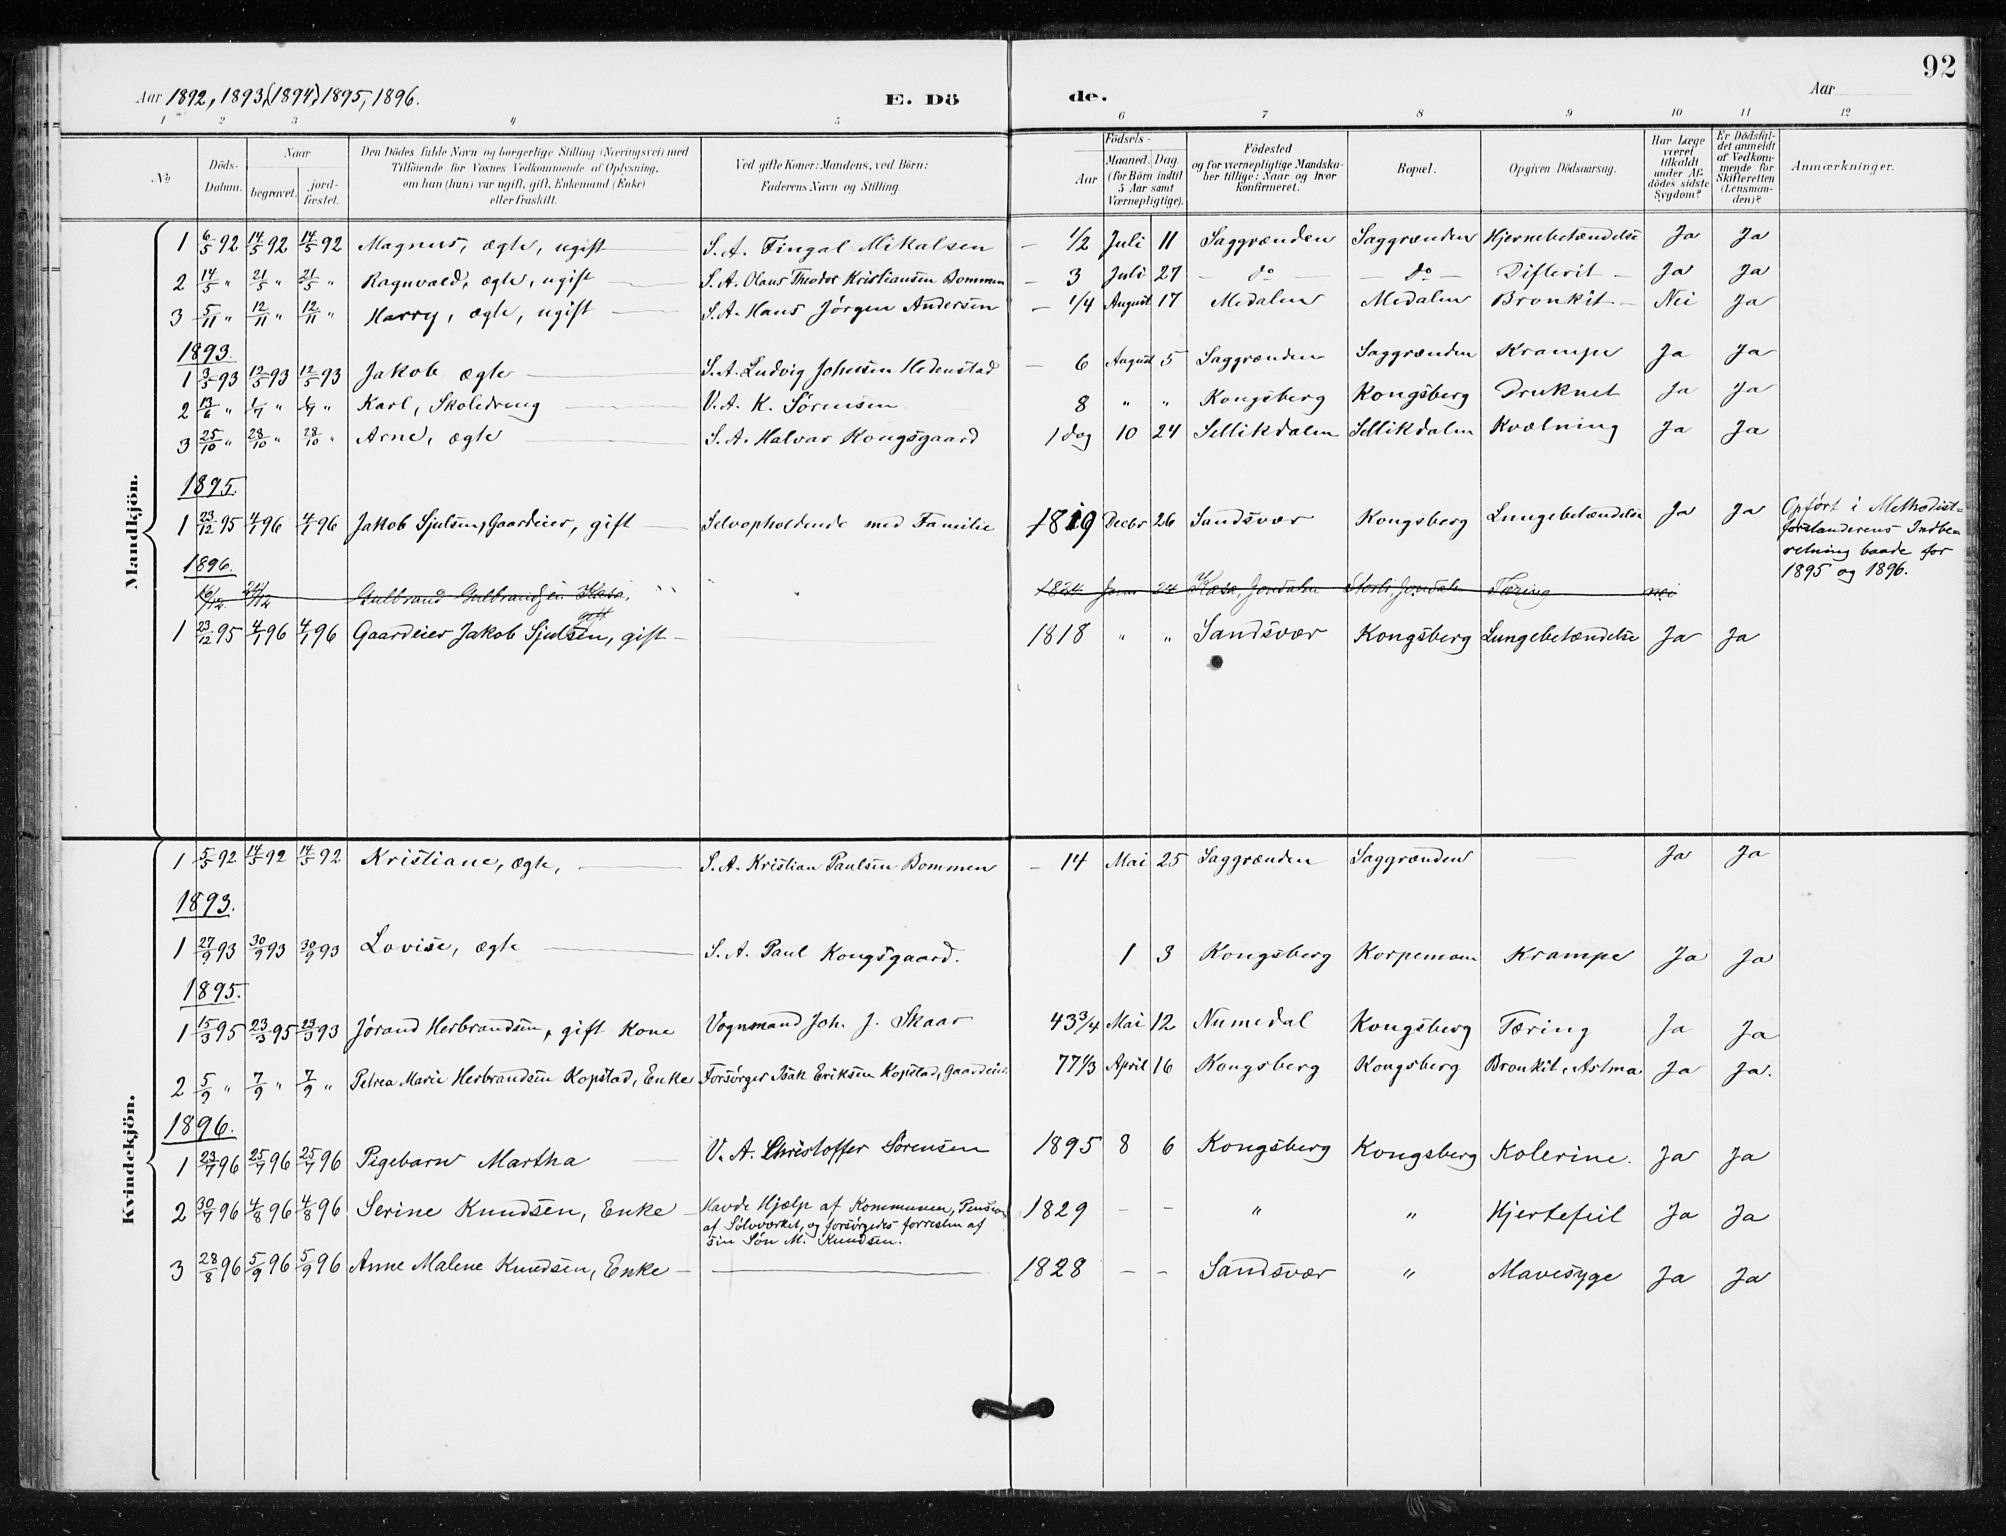 92
Aar 1892, 1893, (1894), 1895, 1896.
E. Dö
de.
Aar
1 2 3 4 5 6 7 8 9 10 11 12
No
Döds-Datum.
Naar
begravet.
jord-fæstet.
Den Dödes fulde Navn og borgerlige Stilling (Næringsvei) med
Tilföiende for Voxnes Vedkommende af Oplysning,
om han (hun) var ugift, gift, Enkemand (Enke)
eller fraskilt.
Ved gifte Koner: Mandens, ved Börn:
Faderens Navn og Stilling.
Födsels-
Aar
Maaned. Dag.
(for Börn indtil
5 Aar samt
Værnepligtige).
Födested
og for værnepligtige Mandska-
ber tillige: Naar og hvor
konfirmeret.
Bopæl.
Opgiven Dödsaarsag.
Har Læge
været
tilkaldt
under Af-
dödes sidste
Sygdom?
Er Dödsfal-
det anmeldt
af Vedkom-
mende for
Skifteretten
(Lensman-
den)?
Anmærkninger.
Mandkjön.
1 6/5 92 14/5 92 14/5 92 Magnus, ægte, ugift S. A. Fingal Mikalsen – 1/2 Juli 11 Saggrænden Saggrænden Hjernebetændelse Ja Ja
2 14/5 " 21/5 " 21/5 " Ragnvald, ægte, ugift S. A. Olaus Theodor Kristiansen Bommen – 3 Juli 27 – do – – do – Difterit – Ja Ja
3 5/11 " 12/11 " 12/11 " Harry, ægte, ugift S. A. Hans Jørgen Andersen – 1/4 August 17 Medalen Medalen Bronkit – Nei Ja
1893.
1 3/5 93 12/5 93 12/5 93 Jakob ægte S. A. Ludvig Johnsen Hedenstad – 6 August 5 Saggrænden Saggrænden Krampe Ja Ja
2 13/6 " 1/7 " 1/7 " Karl, Skoledreng V. A. K. Sørensen 8 " " Kongsberg Kongsberg Druknet Ja Ja
3 25/10 " 28/10 " 28/10 " Arne, ægte S. A. Halvar Kongsgaard 1 dag 10 24 Sellikdalen Sellikdalen Kvælning Ja Ja
1895.
1 23/12 95 4/1 96 4/1 96 Jakob Sjulsen, Gaardeier, gift Selvopholdende med Familie 1819 Decbr 26 Sandsvær Kongsberg Lungebetændelse Ja Ja Opført i Methodist-
forstanderens Indbe-
retning baade for
1895 og 1896.
1896.
16/12 24/12 Gulbrand Gulbrandsen Kasa, gift 1824 Janr 24 Kasa, Jondalen Jondalen Tæring nei
1 23/12 95 4/1 96 4/1 96 Gaardeier Jakob Sjulsen, gift – 1818 " " Sandsvær Kongsberg Lungebetændelse Ja Ja
Kvindekjön.
1 5/5 92 14/5 92 14/5 92 Kristiane, ægte, S. A. Kristian Paulsen Bommen – 14 Mai 25 Saggrænden Saggrænden Ja Ja
1893.
1 27/9 93 30/9 93 30/9 93 Lovise, ægte S. A. Paul Kongsgaard. 1 3 Kongsberg Korpemoen Krampe Ja Ja
1895.
1 15/3 95 23/3 95 23/3 93 Jørand Herbrandsen, gift Kone Vognmand Joh. J. Skaar 43 3/4 Mai 12 Numedal Kongsberg Tæring Ja Ja
2 5/9 " 7/9 " 7/9 " Petrea Marie Herbrandsen Kopstad, Enke Forsørger Isak Eriksen Kopstad, Gaardeier. 77 1/3 April 16 Kongsberg Kongsberg Bronkit, Astma Ja Ja.
1896.
1 23/7 96 25/7 96 25/7 96 Pigebarn Martha V. A. Christoffer Sørensen 1895 8 6 Kongsberg Kongsberg Kolerine. Ja Ja
2 30/7 96 4/8 96 4/8 96 Serine Knudsen, Enke – Havde Hjælp af Kommunen, Pension
af Sølvværket, og forsørgedes forresten af
sin Søn M. Knudsen. 1829 – – " " Hjertefeil Ja Ja
3 28/8 96 5/9 96 5/9 96 Anne Malene Knudsen, Enke – 1828 – – Sandsvær " Mavesyge Ja Ja